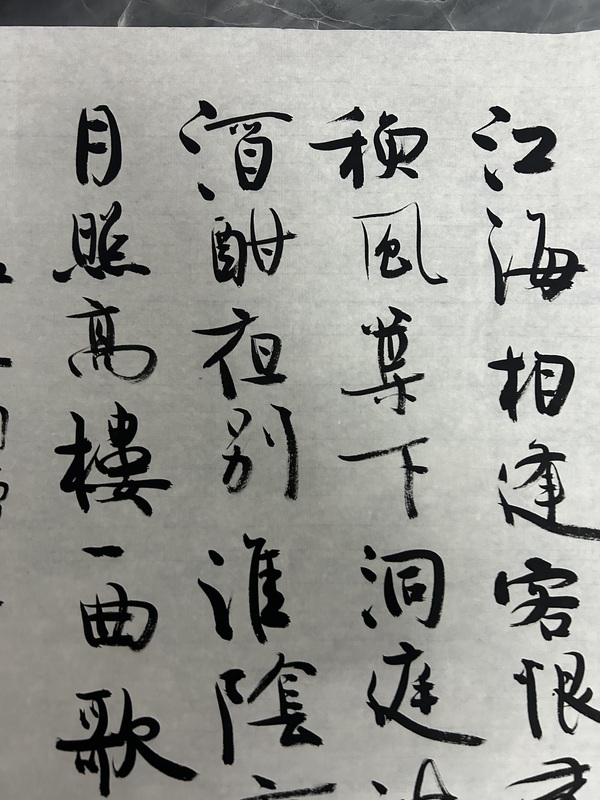 江海相逢客恨
秋風葉下洞庭
酒酣夜别淮陰
月照高樓一曲歌